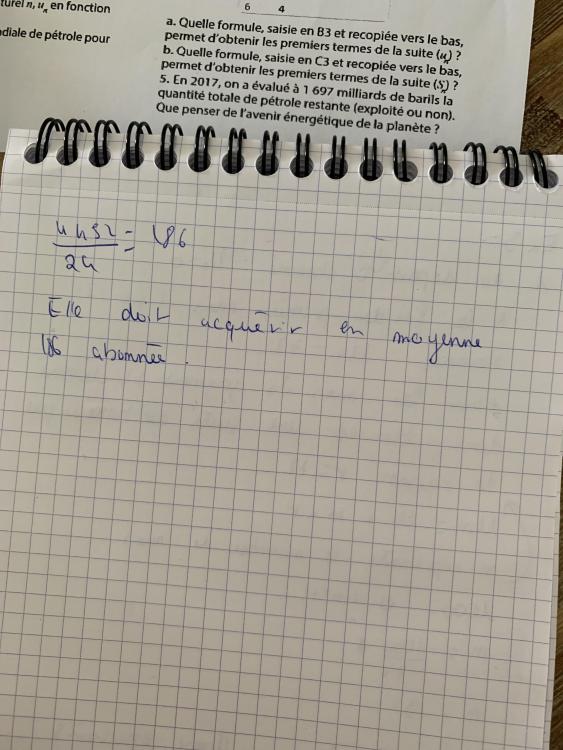 turel n, uₙ en fonction
ndiale de pétrole pour
6 4
a. Quelle formule, saisie en B3 et recopiée vers le bas,
permet d'obtenir les premiers termes de la suite (uₙ) ?
b. Quelle formule, saisie en C3 et recopiée vers le bas,
permet d'obtenir les premiers termes de la suite (Sₙ) ?
5. En 2017, on a évalué à 1 697 milliards de barils la
quantité totale de pétrole restante (exploité ou non).
Que penser de l'avenir énergétique de la planète ?
4452 = 186
24
Elle doit acquérir en moyenne
186 abonnée.